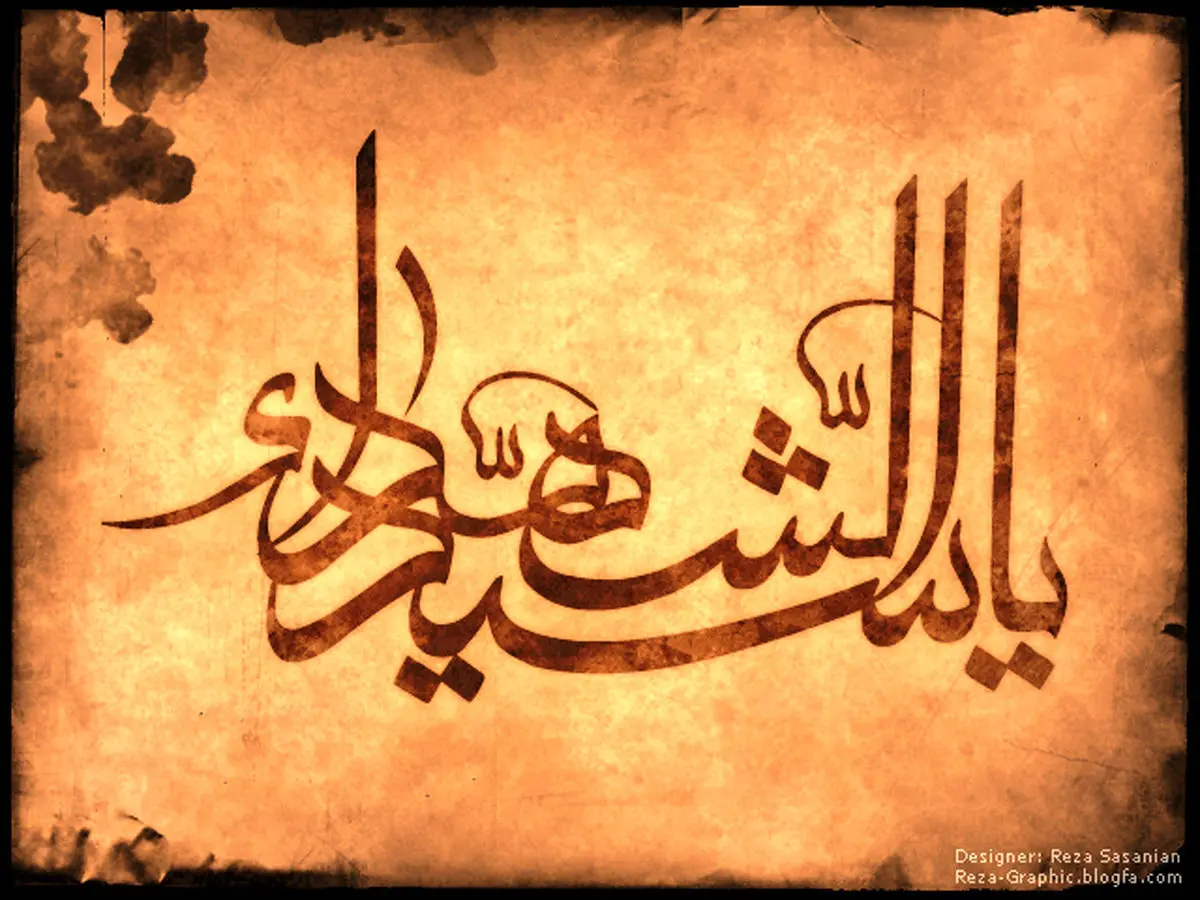 يا سيد الشهداء
Designer: Reza Sasanian
Reza-Graphic.blogfa.com